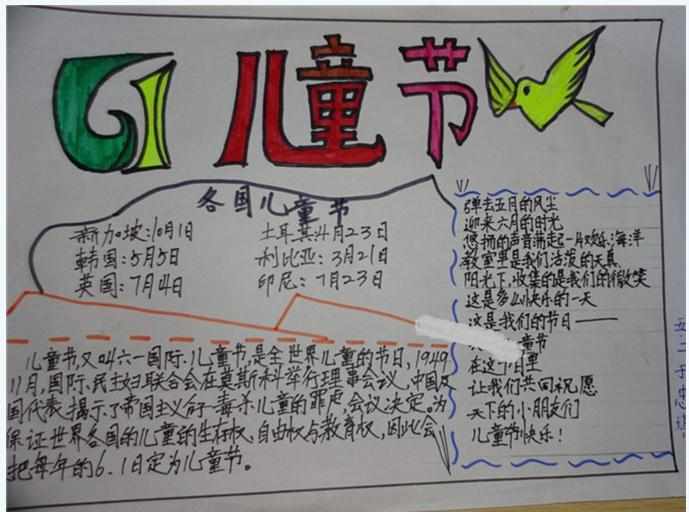 61 儿童节
各国儿童节
新加坡:10月1日
韩国:5月5日
英国:7月4日
土耳其:4月23日
利比亚:3月21日
印尼:7月23日
儿童节,又叫六一国际儿童节,是全世界儿童的节日,1949
11月,国际民主妇联合会在莫斯科举行理事会议,中国及
国代表揭示了帝国主义 毒杀儿童的罪
,会议决定。为
保证世界各国的儿童的生存权,自由权与教育权,因此会
把每年的6.1日定为儿童节。
弹去五月的风尘
迎来六月的时光
悠扬的声音荡起一片欢乐海洋
教室里是我们活泼的天真
阳光下,收集的是我们的微笑
这是多么快乐的一天
这是我们的节日——
童节
在这 日里
让我们共同祝愿
天下的小朋友们
儿童节快乐!